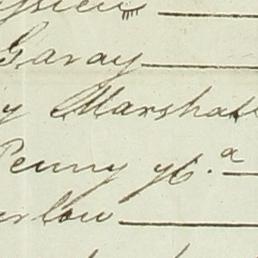 Garay
y Marshall
Penny y C.ª
rlow